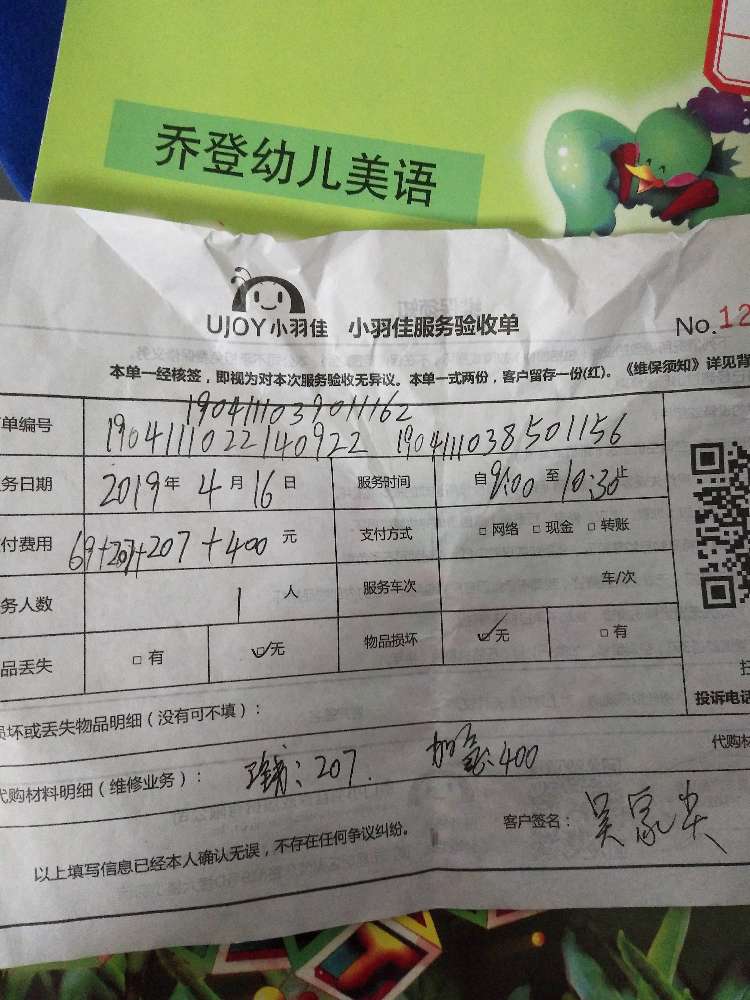 乔登幼儿美语
UJOY小羽佳 小羽佳服务验收单 No.12
本单一经核签，即视为对本次服务验收无异议。本单一式两份，客户留存一份(红)。《维保须知》详见背
单编号 1904111039011162
1904111022140922 1904111038501156
务日期 2019年4月16日 服务时间 自9:00至10:30止
付费用 69+207+207+400元 支付方式 □网络 □现金 □转账
务人数 1人 服务车次 车/次
品丢失 □有 ☑无 物品损坏 ☑无 □有
投诉电话
损坏或丢失物品明细（没有可不填）：
代购材料明细（维修业务）： 207. 400 代购材
以上填写信息已经本人确认无误，不存在任何争议纠纷。 客户签名：吴家尖